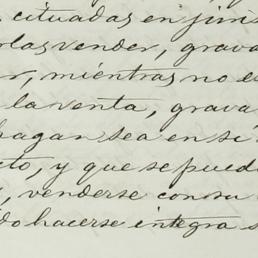 situadas en juris
las vender, grava
r, mientras no e
la venta, grava
hagan sea en si
cto, y que se pued
, venderse con su
do hacerse integra s